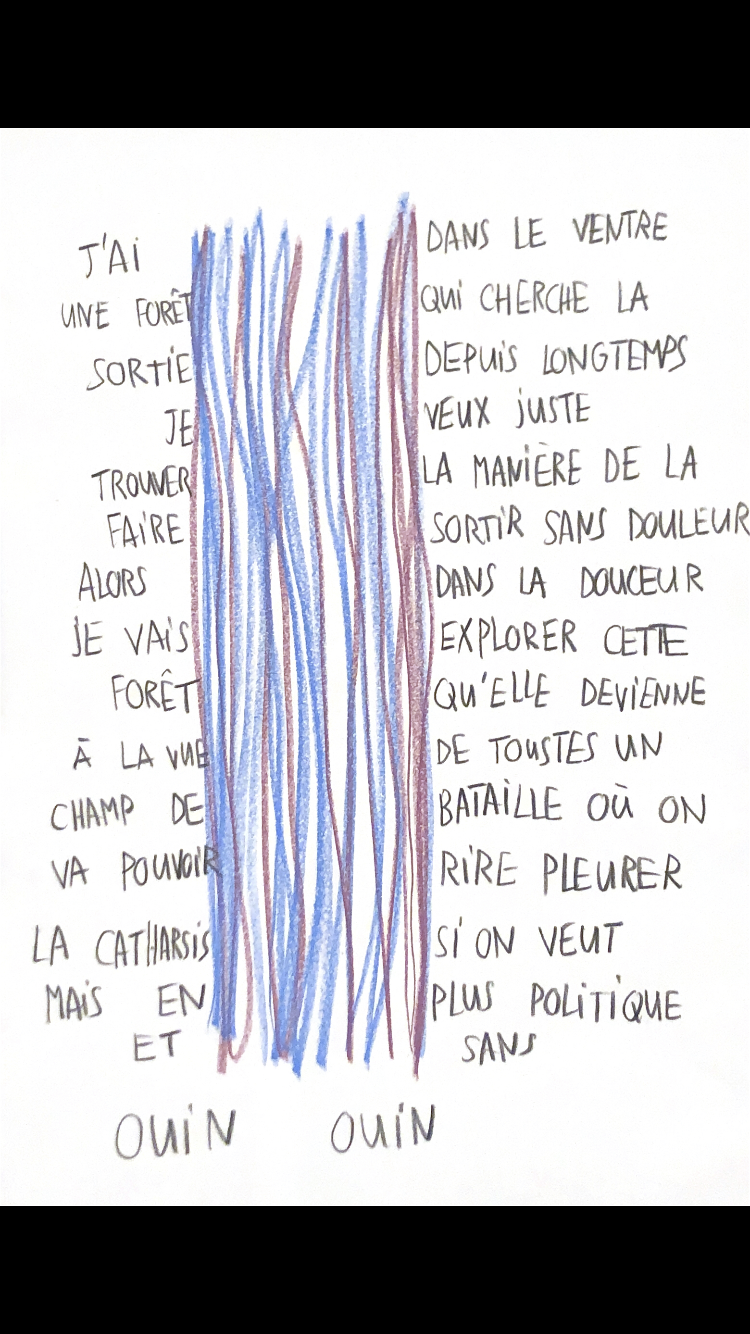 J'Ai DANS LE VENTRE
UNE FORÊT QUi CHERCHE LA
SORTiE DEPUiS LONGTEMPS
JE VEUX JUSTE
TROUVER LA MANiÈRE DE LA
FAiRE SORTiR SANS DOULEUR
ALORS DANS LA DOUCEUR
JE VAiS EXPLORER CETTE
FORÊT QU'ELLE DEViENNE
À LA VUE DE TOUSTES UN
CHAMP DE BATAiLLE OÙ ON
VA POUVOiR RiRE PLEURER
LA CATHARSiS Si ON VEUT
MAiS EN PLUS POLiTiQUE
ET SANS
OUiN OUiN